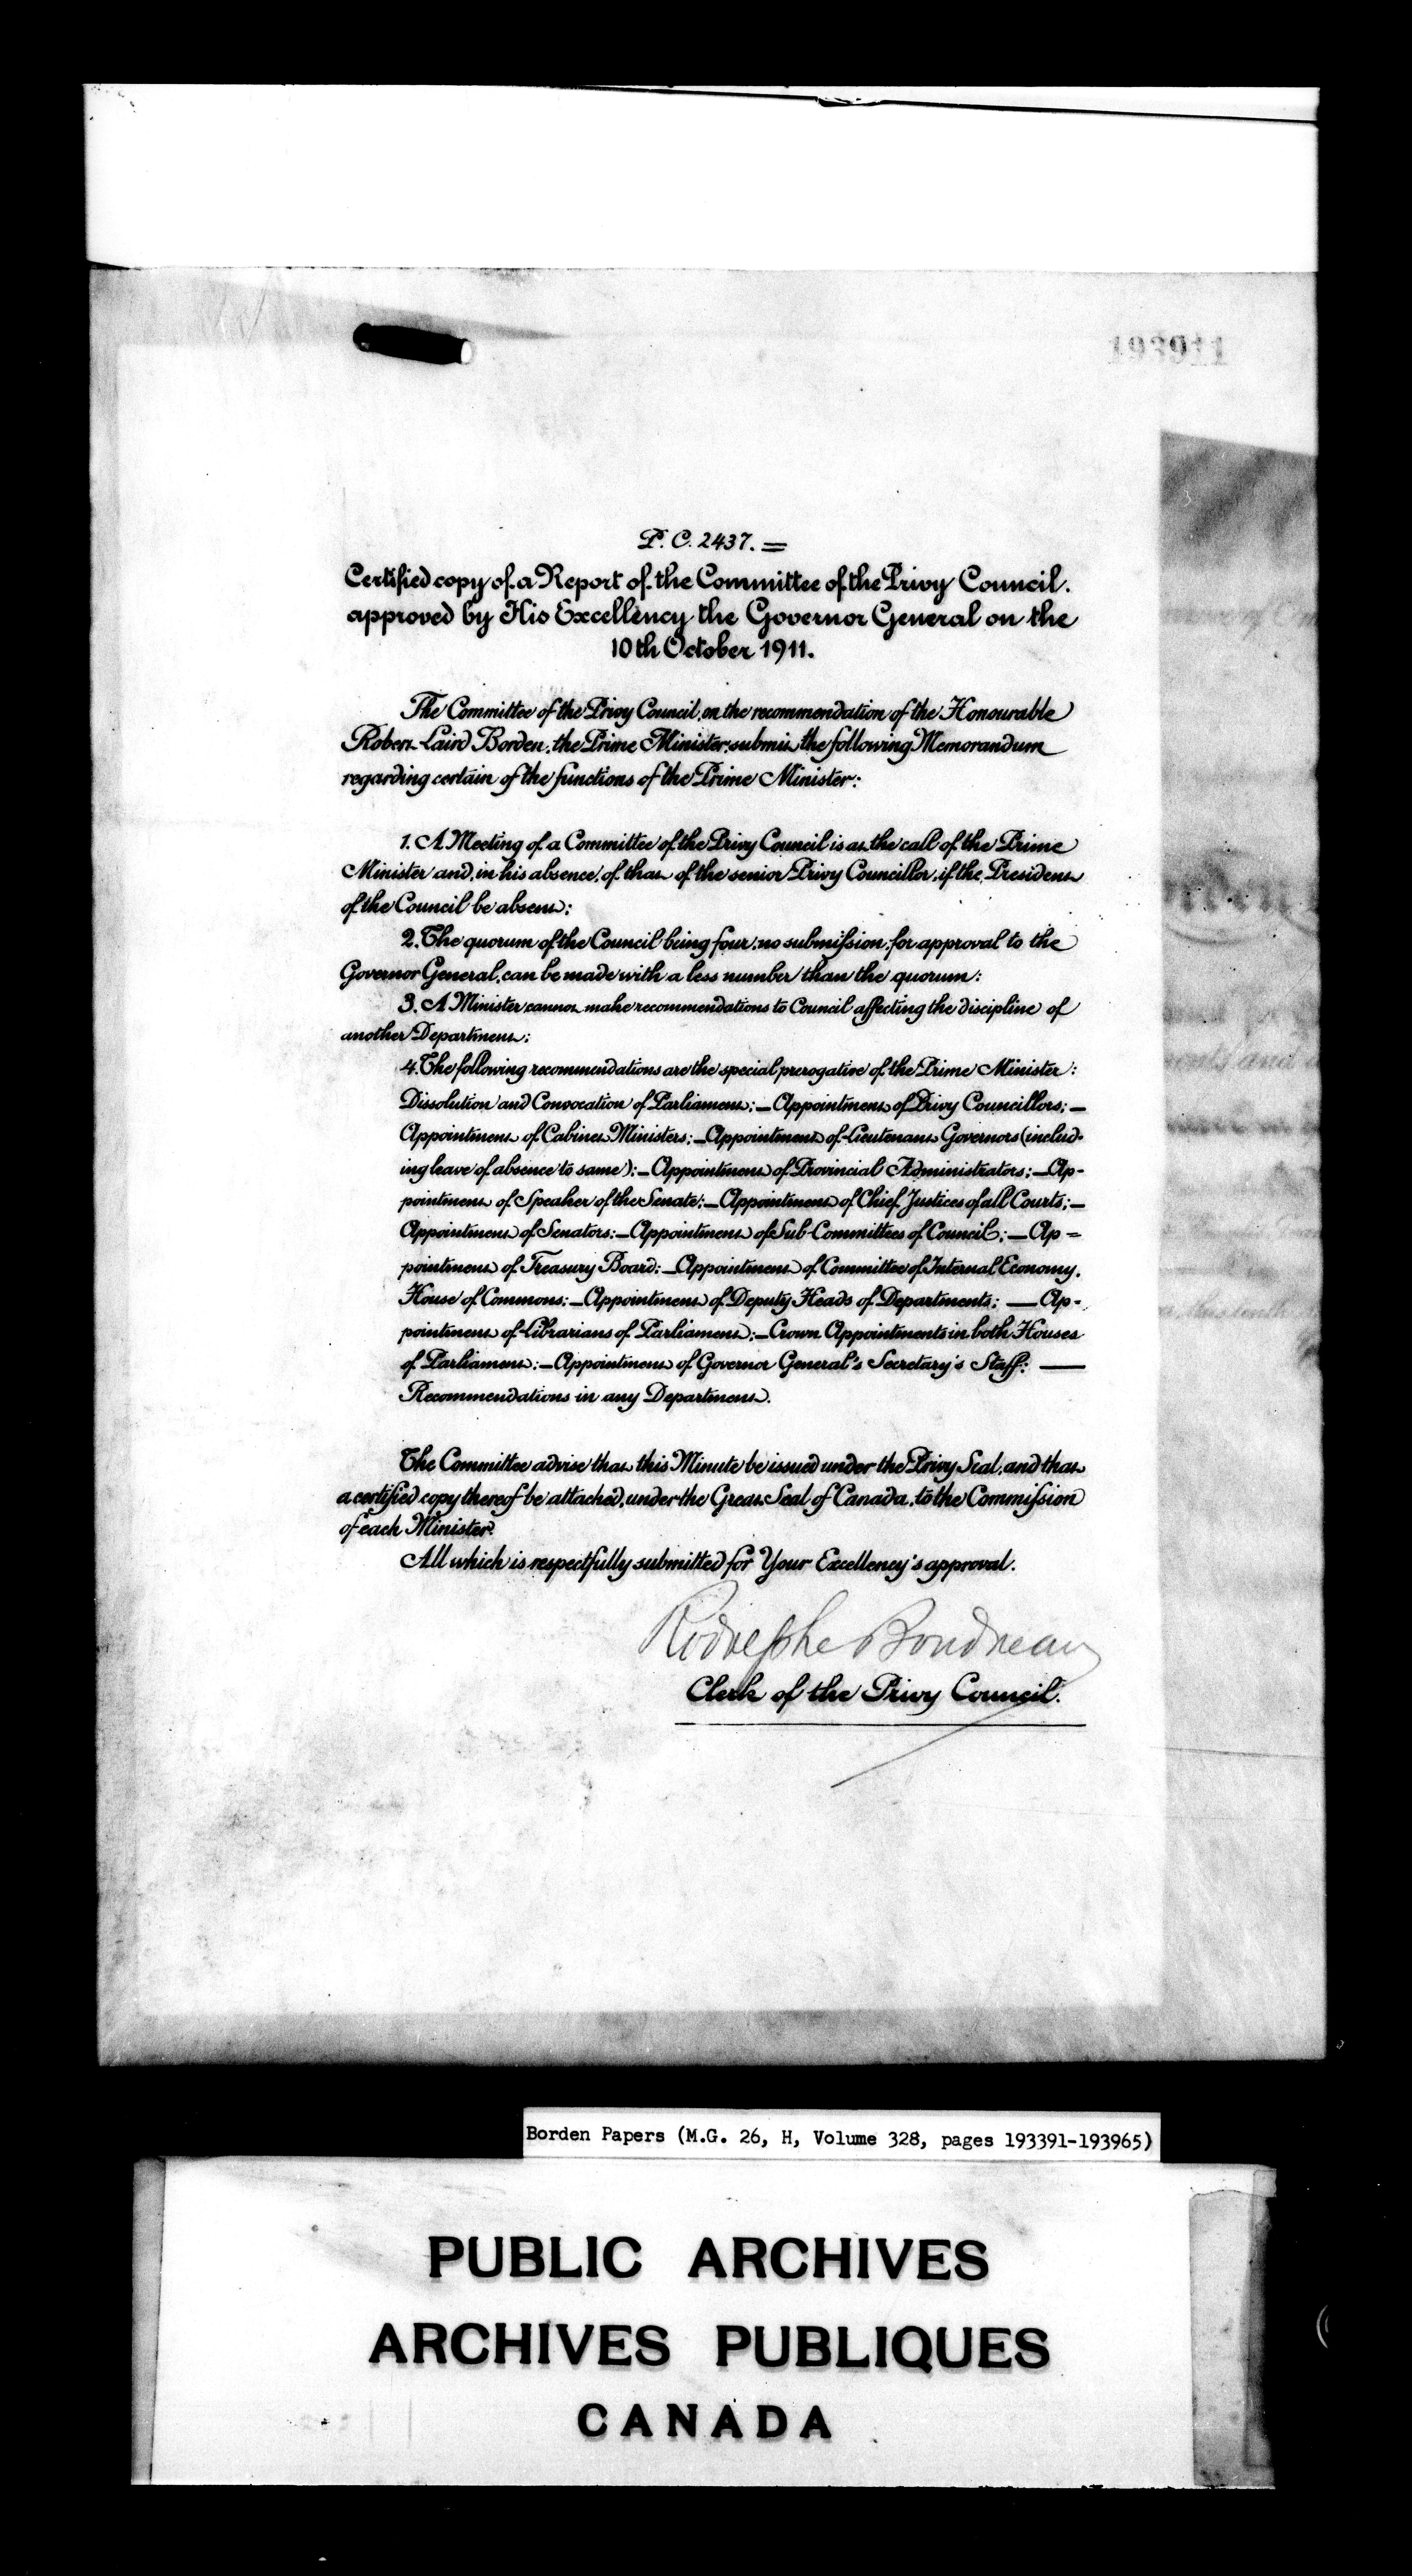 193941
P. C. 2437. =
Certified copy of a Report of the Committee of the Privy Council,
approved by His Excellency the Governor General on the
10th October 1911.
The Committee of the Privy Council, on the recommendation of the Honourable
Robert Laird Borden, the Prime Minister, submit the following Memorandum
regarding certain of the functions of the Prime Minister:
1. A Meeting of a Committee of the Privy Council is at the call of the Prime
Minister and, in his absence, of that of the senior Privy Councillor, if the President
of the Council be absent;
2. The quorum of the Council being four, no submission, for approval to the
Governor General, can be made with a less number than the quorum;
3. A Minister cannot make recommendations to Council affecting the discipline of
another Department;
4. The following recommendations are the special prerogative of the Prime Minister:
Dissolution and Convocation of Parliament; — Appointment of Privy Councillors; —
Appointment of Cabinet Ministers; — Appointment of Lieutenant Governors (includ-
ing leave of absence to same); — Appointment of Provincial Administrators; — Ap-
pointment of Speaker of the Senate; — Appointment of Chief Justices of all Courts; —
Appointment of Senators; — Appointment of Sub-Committees of Council; — Ap-
pointment of Treasury Board; — Appointment of Committee of Internal Economy,
House of Commons; — Appointment of Deputy Heads of Departments; — Ap-
pointment of Librarians of Parliament; — Crown Appointments in both Houses
of Parliament; — Appointment of Governor General's Secretary's Staff; —
Recommendations in any Department.
The Committee advise that this Minute be issued under the Privy Seal, and that
a certified copy thereof be attached, under the Great Seal of Canada, to the Commission
of each Minister.
All which is respectfully submitted for Your Excellency's approval.
Rodolphe Boudreau
Clerk of the Privy Council.
Borden Papers (M.G. 26, H, Volume 328, pages 193391-193965)
PUBLIC ARCHIVES
ARCHIVES PUBLIQUES
CANADA